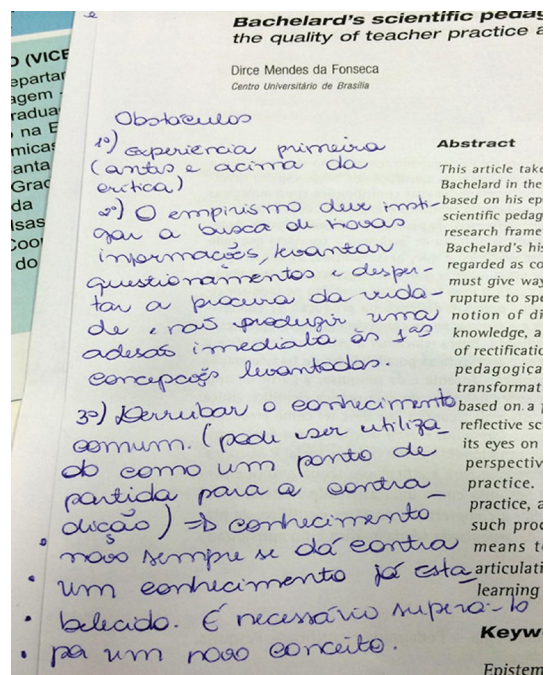 Bachelard's scientific pedag
the quality of teacher practice a
Dirce Mendes da Fonseca
Centro Universitário de Brasília
Obstáculos
1º) experiencia primeira
(antes e acima da
crítica)
2º) O empirismo deve insti-
gar a busca de novas
informações, levantar
questionamentos e desper-
tar a procura da verda-
de e não produzir uma
adesão imediata às 1ªs
concepções levantadas.
3º) Derrubar o conhecimento
comum. (pode ser utiliza_
do como um ponto de
partida para a contra_
dicção) => conhecimento
novo sempre se dá contra
um conhecimento já esta_
belecido. É necessário supera-lo
por um novo conceito.
Abstract
This article take
Bachelard in the
based on his ep
scientific pedag
research frame
Bachelard's his
regarded as co
must give way
rupture to spe
notion of di
knowledge, a
of rectificatio
pedagogica
transformat
based on a p
reflective sc
its eyes on
perspectiv
practice.
practice, a
such proc
means t
articulati
learning
Keyw
Epistem
O (VICE
epartar
agem -
radua
na E
micas
anta
Grac
da
lsas
Coor
do